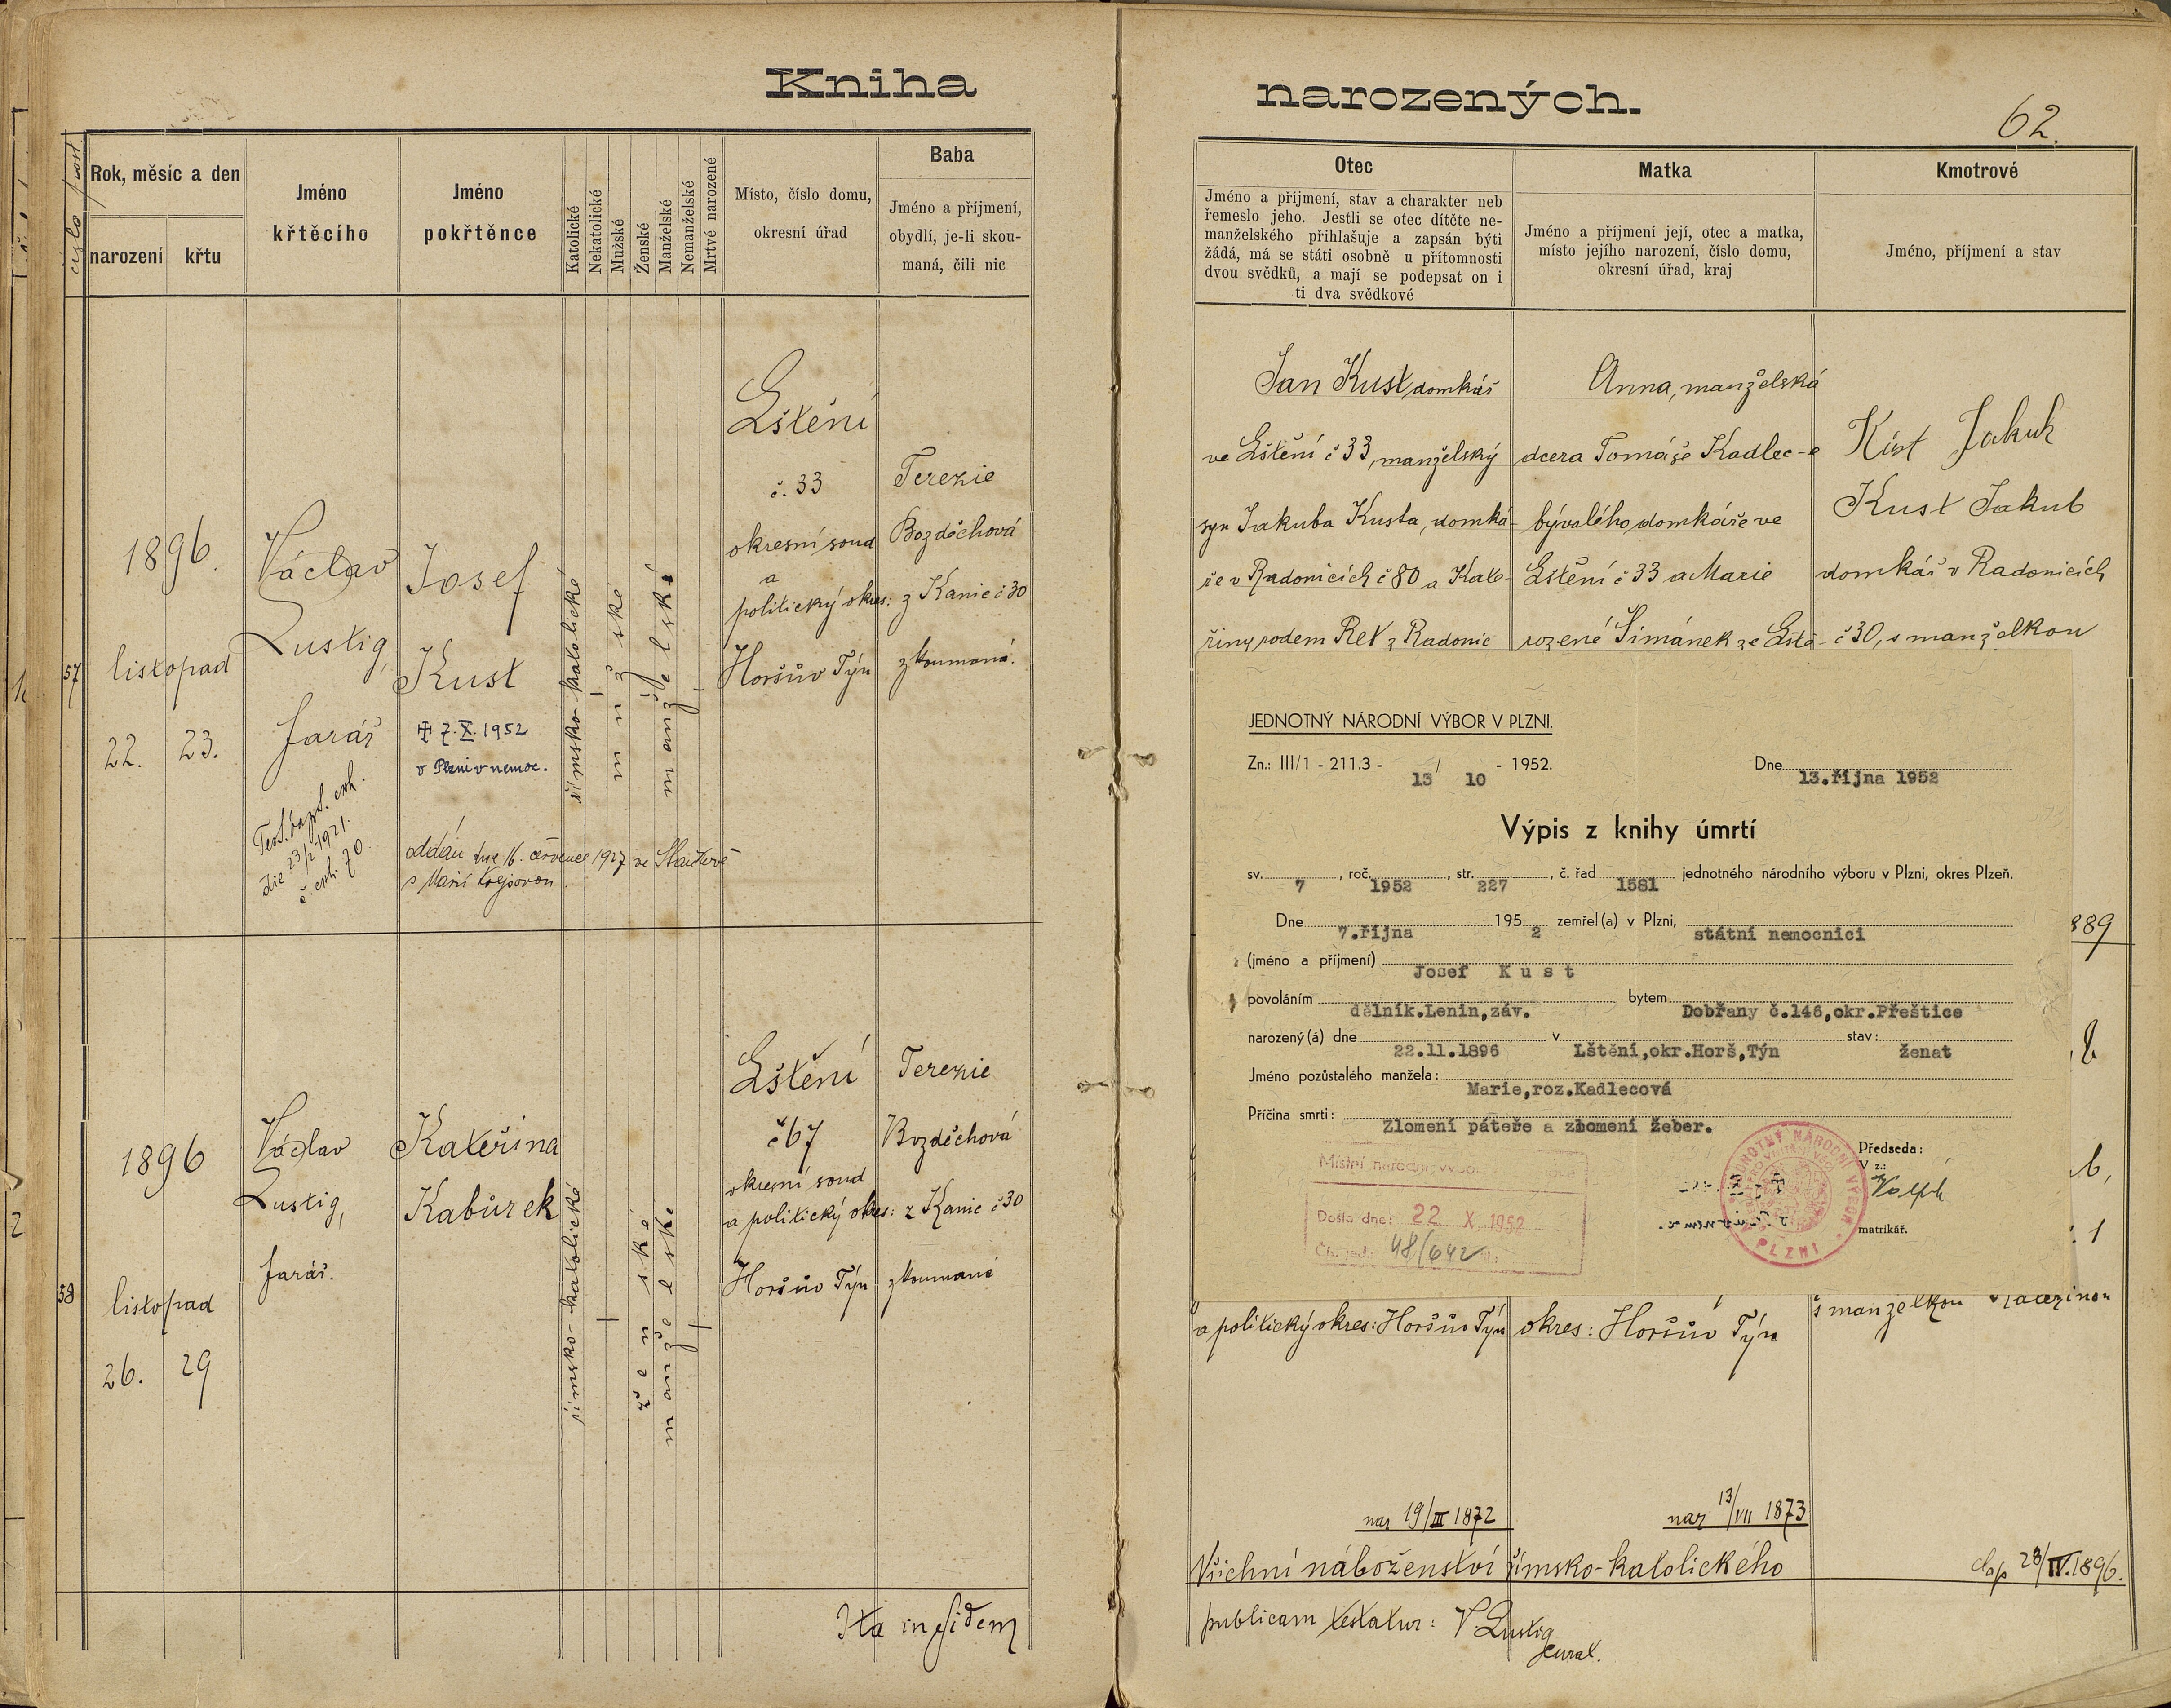 Kniha
číslo post
Rok, měsíc a den
narození
křtu
Jméno
křtěcího
Jméno
pokřtěnce
Katolické
Nekatolické
Mužské
Ženské
Manželské
Nemanželské
Mrtvé narozené
Místo, číslo domu,
okresní úřad
Baba
Jméno a příjmení,
obydlí, je-li skou-
maná, čili nic
57
1896.
listopad
22.
23.
Václav
Lustig,
farář
23/2 1921.
č. exh. 70
Josef
Kust
7.X.1952
v Plzni v nemoc.
oddán dne 16. července 1927 ve Staňkově
s Marií
římsko-katolické
mužské
manželské
Lštění
č. 33
okresní soud
a
politický okres:
Horšův Týn
Terezie
Bozděchová
z Kanic č 30
zkoumaná.
58
1896
listopad
26.
29
Václav
Lustig,
farář.
Kateřina
Kabůrek
římsko-katolické
ženské
manželské
Lštění
č 67
okresní soud
a politický okres:
Horšův Týn
Terezie
Bozděchová
z Kanic č 30
zkoumaná
Ita in fidem
narozených.
62.
Otec
Jméno a příjmení, stav a charakter neb
řemeslo jeho. Jestli se otec dítěte ne-
manželského přihlašuje a zapsán býti
žádá, má se státi osobně u přítomnosti
dvou svědků, a mají se podepsat on i
ti dva svědkové
Matka
Jméno a příjmení její, otec a matka,
místo jejího narození, číslo domu,
okresní úřad, kraj
Kmotrové
Jméno, příjmení a stav
Jan Kust, domkář
ve Lštění č 33, manželský
syn Jakuba Kusta, domká-
ře v Radonicích č 80 a Kate-
řiny rodem Ret z Radonic
Anna, manželská
dcera Tomáše Kadlec-e
bývalého domkáře ve
Lštění č 33 a Marie
rozené Šimánek ze Lště-
Kust Jakub
Kust Jakub
domkář v Radonicích
č 30, s manželkou
JEDNOTNÝ NÁRODNÍ VÝBOR V PLZNI.
Zn.: III/1 - 211.3 - 13 / 10 - 1952.
Dne 13.října 1952
Výpis z knihy úmrtí
sv. 7, roč. 1952, str. 227, č. řad 1581 jednotného národního výboru v Plzni, okres Plzeň.
Dne 7.října 195 2 zemřel(a) v Plzni, státní nemocnici
(jméno a příjmení) Josef K u s t
povoláním dělník.Lenin,záv. bytem Dobřany č.146,okr.Přeštice
narozený(á) dne 22.11.1896 v Lštění,okr.Horš,Týn stav: ženat
Jméno pozůstalého manžela: Marie,roz.Kadlecová
Příčina smrti: Zlomení páteře a zlomení žeber.
Místní národní výbor
Došlo dne: 22 X. 1952
Čís. jed.: 48/642
JEDNOTNÝ NÁRODNÍ VÝBOR
PLZNI
Předseda:
V z.:
matrikář.
889
a politický okres: Horšův Týn
okres: Horšův Týn
s manželkou Kateřinou
nar 19/III 1872
nar 13/VII 1873
Všichni náboženství římsko-katolického
28/IV.1896.
publicam testatur: V. Lustig
curat.